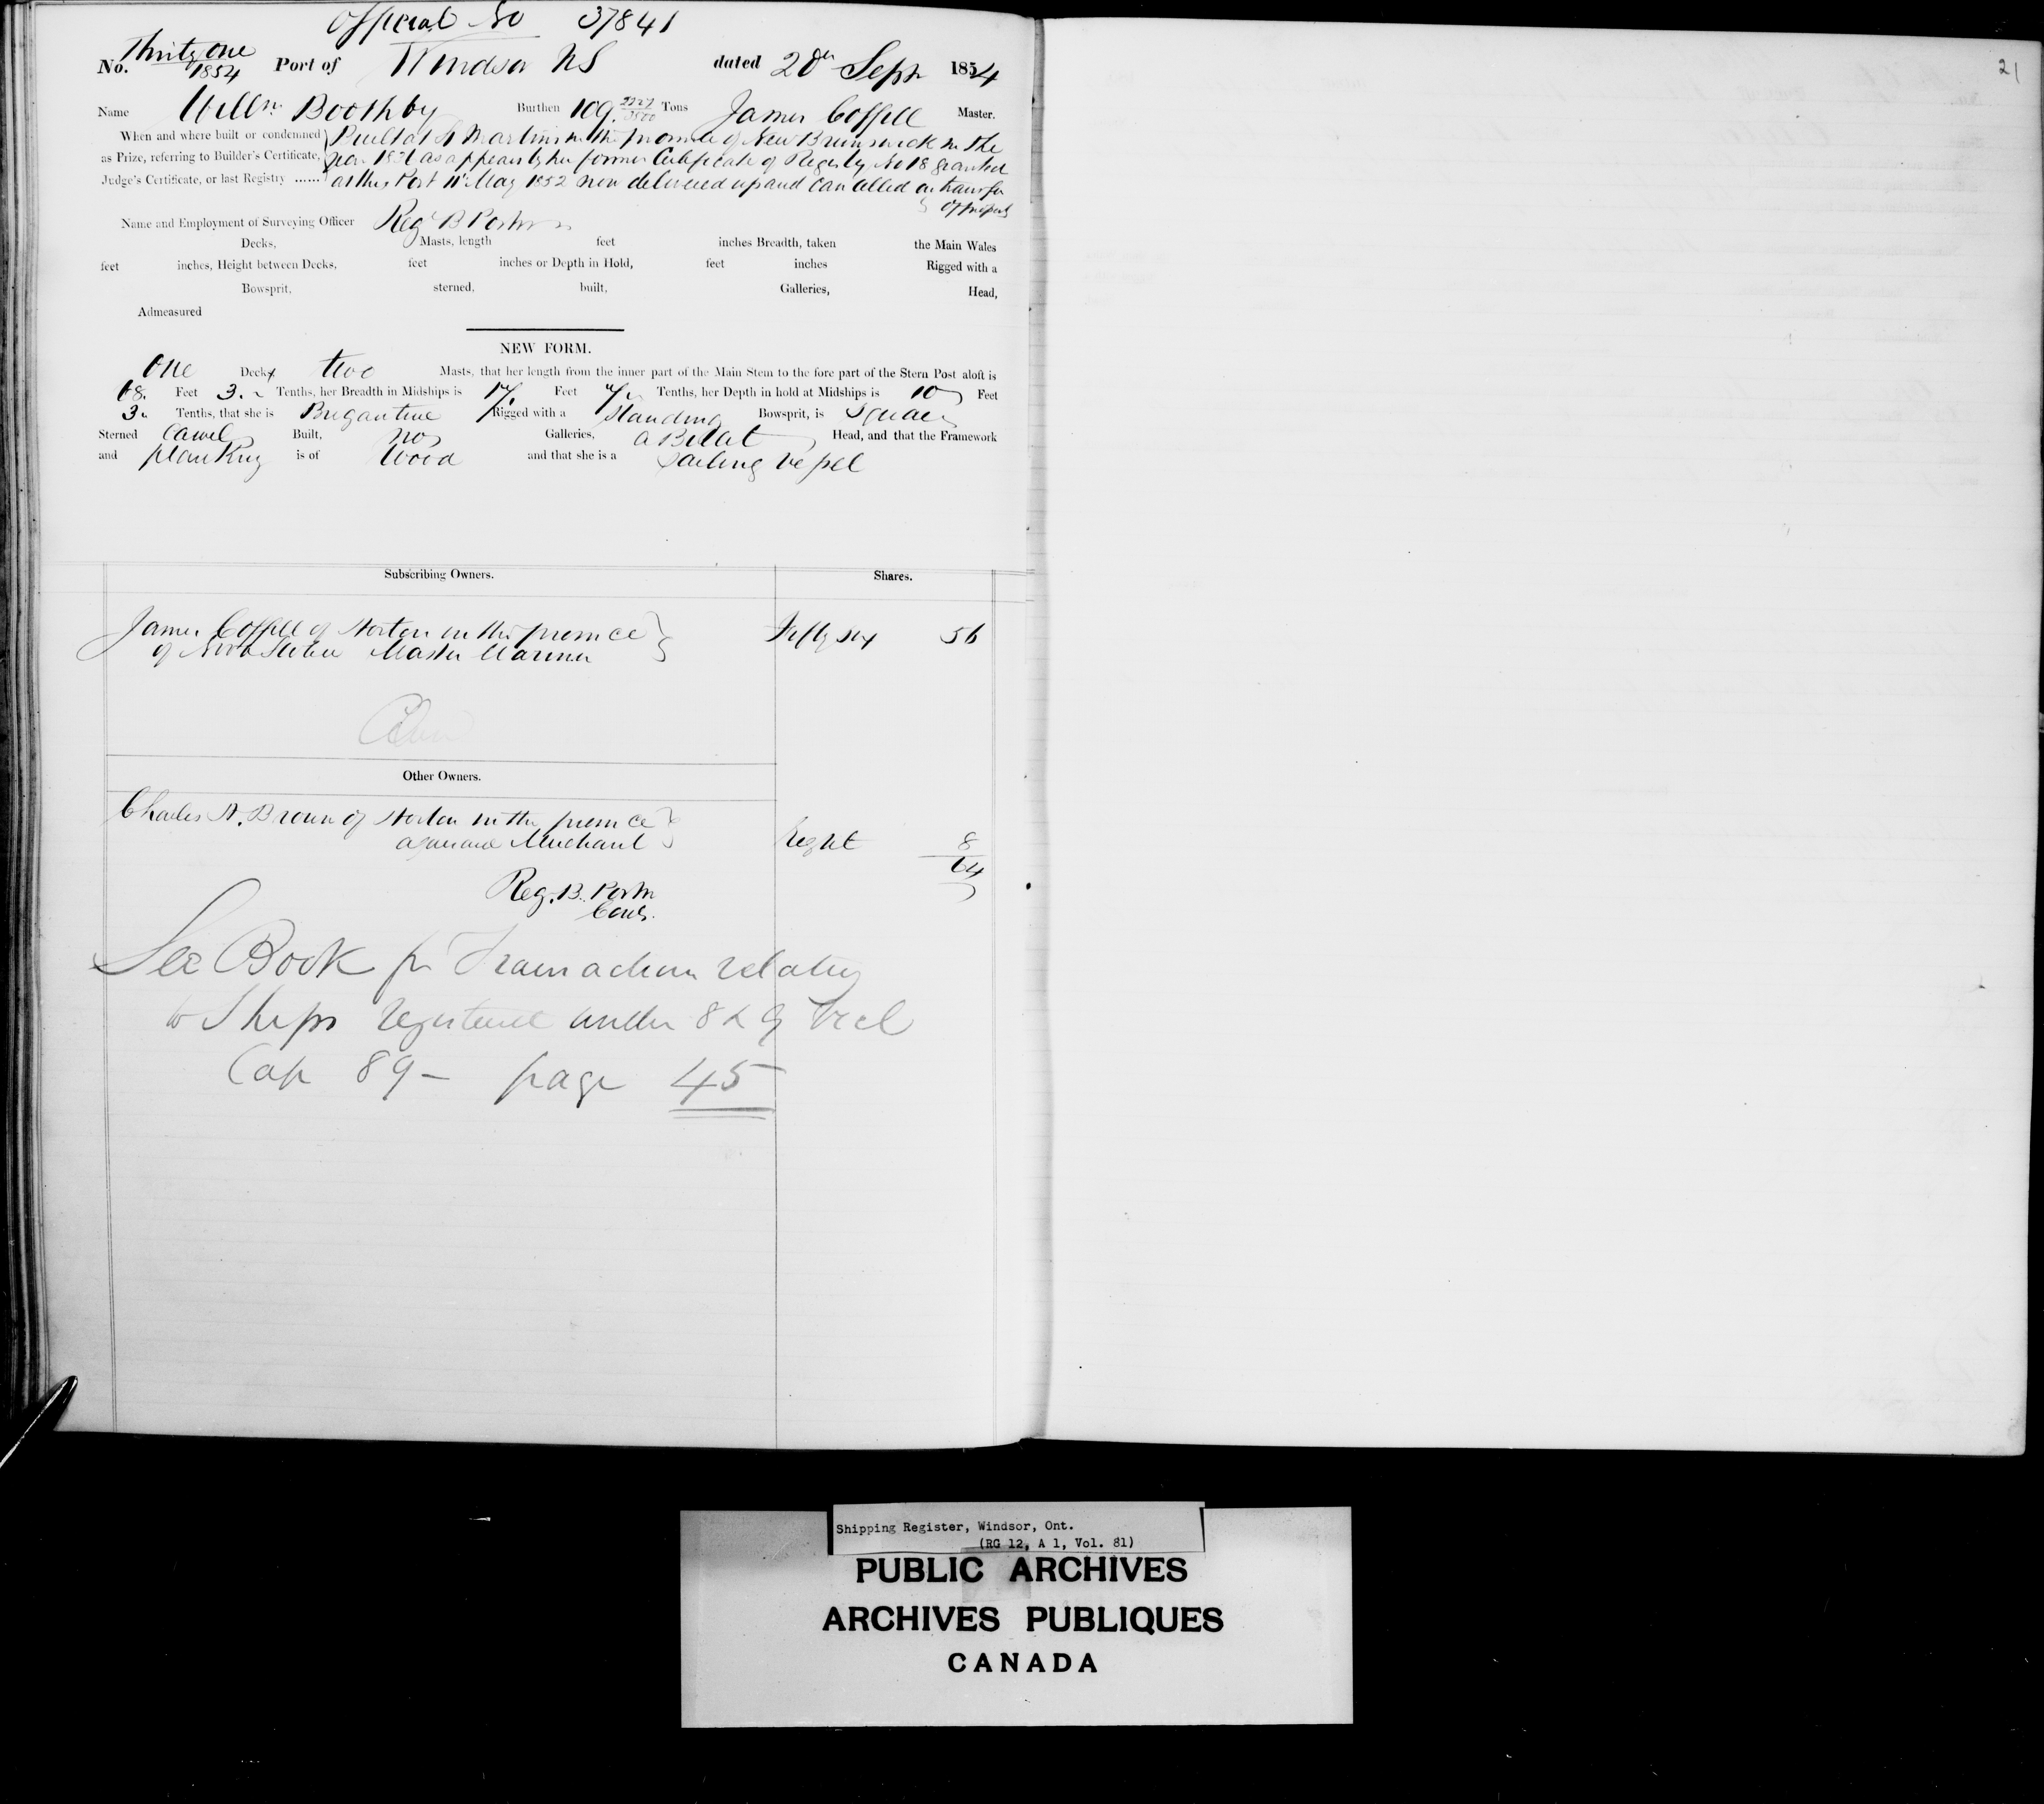 Official No 37841
No. Thirty one 1854 Port of Windsor NS dated 28th Sepr 1854
21
Name Willm Boothby Burthen 109. Tons James Coffill Master.
When and where built or condemned as Prize, referring to Builder's Certificate, Judge's Certificate, or last Registry ......
Built at St Martins in the province of New Brunswick in the
year as appears by her former Certificate of Registry No 18 granted
at this Port 11th May 1852 now delivered up and Cancelled on transfer
of Property
Name and Employment of Surveying Officer Reg B Porter
Decks, Masts, length feet inches Breadth, taken the Main Wales
feet inches, Height between Decks, feet inches or Depth in Hold, feet inches Rigged with a
Bowsprit, sterned, built, Galleries, Head,
Admeasured
NEW FORM.
One Deck two Masts, that her length from the inner part of the Main Stem to the fore part of the Stern Post aloft is
68. Feet 3. Tenths, her Breadth in Midships is Feet Tenths, her Depth in hold at Midships is 10 Feet
3. Tenths, that she is Brigantine Rigged with a Standing Bowsprit, is Square
Sterned Carvel Built, no Galleries, a Billet Head, and that the Framework
and planking is of Wood and that she is a Sailing vessel
Subscribing Owners. Shares.
James Coffill of Horton in the province
of Nova Scotia Master Mariner
Fifty six 56
Other Owners.
Charles A. Brown of Horton in the province
aforesaid Merchant
Eight 8
64
Reg. B. Porter
See Book for Transactions relating
to Ships registered under 8 & 9 Vict
Cap 89 - page 45
Shipping Register, Windsor, Ont.
(RG 12, A 1, Vol. 81)
PUBLIC ARCHIVES
ARCHIVES PUBLIQUES
CANADA